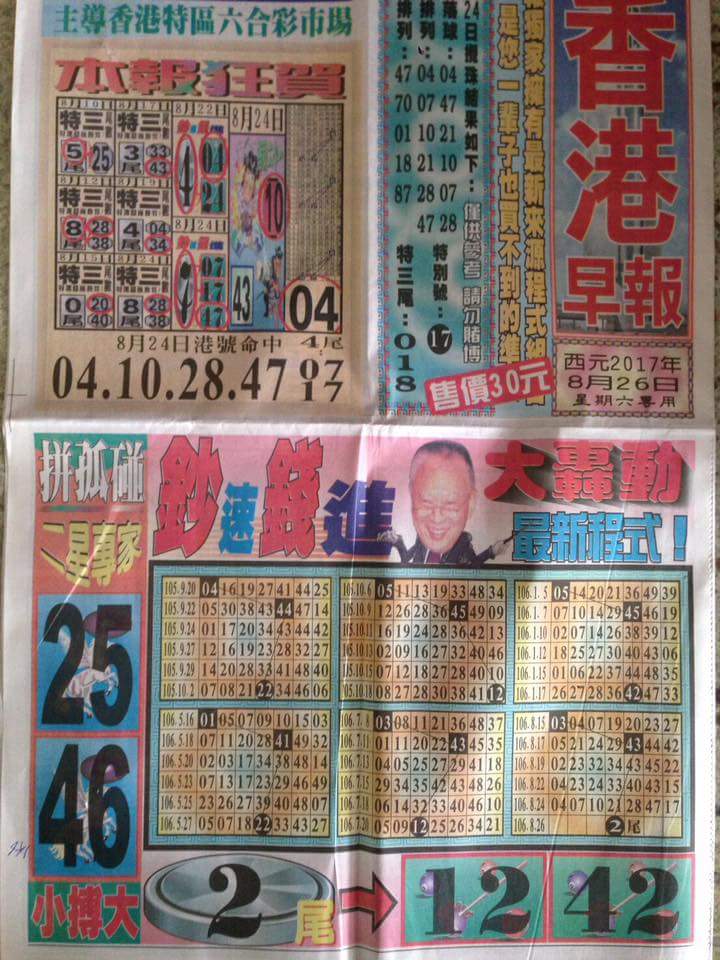 主導香港特區六合彩市場
本報狂賀
8月10日
特三尾
5尾 25
8月17日
特三尾
3尾 33 43
8月22日
4尾 04 24
8月24日
10
43
04
8月12日
特三尾
8尾 28 38
8月19日
特三尾
4尾 04 34
8月24日
7尾 07 17 47
8月15日
特三尾
0尾 20 40
特三尾
8尾 28 38
8月24日港號命中 4尾
04.10.28.47 07 17
香港早報
西元2017年
8月26日
星期六專用
獨家擁有最新來源程式組
是您一輩子也買不到的準
24日攪珠結果如下：僅供參考 請勿賭博
落球：04 47 21 10 07 28 特別號：17
排列：04 07 10 21 28 47
排列：47 70 01 18 87 特三尾：018
售價30元
拼孤碰
二星專家
25
46
鈔速錢進
大轟動
最新程式！
105.9.20 04 16 19 27 41 44 25
105.9.22 05 30 38 43 44 47 14
105.9.24 01 17 20 34 43 44 42
105.9.27 12 16 19 23 28 32 27
105.9.29 14 20 28 33 41 48 40
105.10.2 07 08 21 22 34 46 06
105.10.6 05 11 13 19 33 48 34
105.10.9 12 26 28 36 45 09 09
105.10.11 16 19 24 28 36 42 13
105.10.13 02 09 16 27 32 40 46
105.10.15 07 12 18 27 28 40 10
105.10.18 08 27 28 30 38 41 12
106.1.5 05 14 20 21 36 49 39
106.1.7 07 10 14 29 45 46 19
106.1.10 02 07 14 26 38 39 12
106.1.12 18 25 27 30 40 43 06
106.1.15 01 06 22 37 44 48 35
106.1.17 06 26 27 36 42 47 33
106.5.16 01 05 07 09 10 15 03
106.5.18 07 11 20 28 41 49 32
106.5.20 02 03 17 34 38 48 14
106.5.23 07 13 17 23 29 46 49
106.5.25 23 26 27 39 40 48 07
106.5.27 07 08 22 33 43 27
106.7.4 03 08 11 21 36 48 37
106.7.11 01 11 20 22 43 45 35
106.7.13 04 05 25 27 29 41 18
106.7.15 28 31 30 34 36 42 29
106.7.18 06 14 32 33 40 46 10
106.7.20 05 09 12 25 26 34 21
106.8.15 03 04 07 19 20 23 27
106.8.17 05 21 24 29 43 44 42
106.8.20 22 32 34 43 45 22
106.8.22 04 23 24 35 43 49 38
106.8.24 04 07 10 21 28 47 17
106.8.26 2尾
小搏大
2尾
12
42